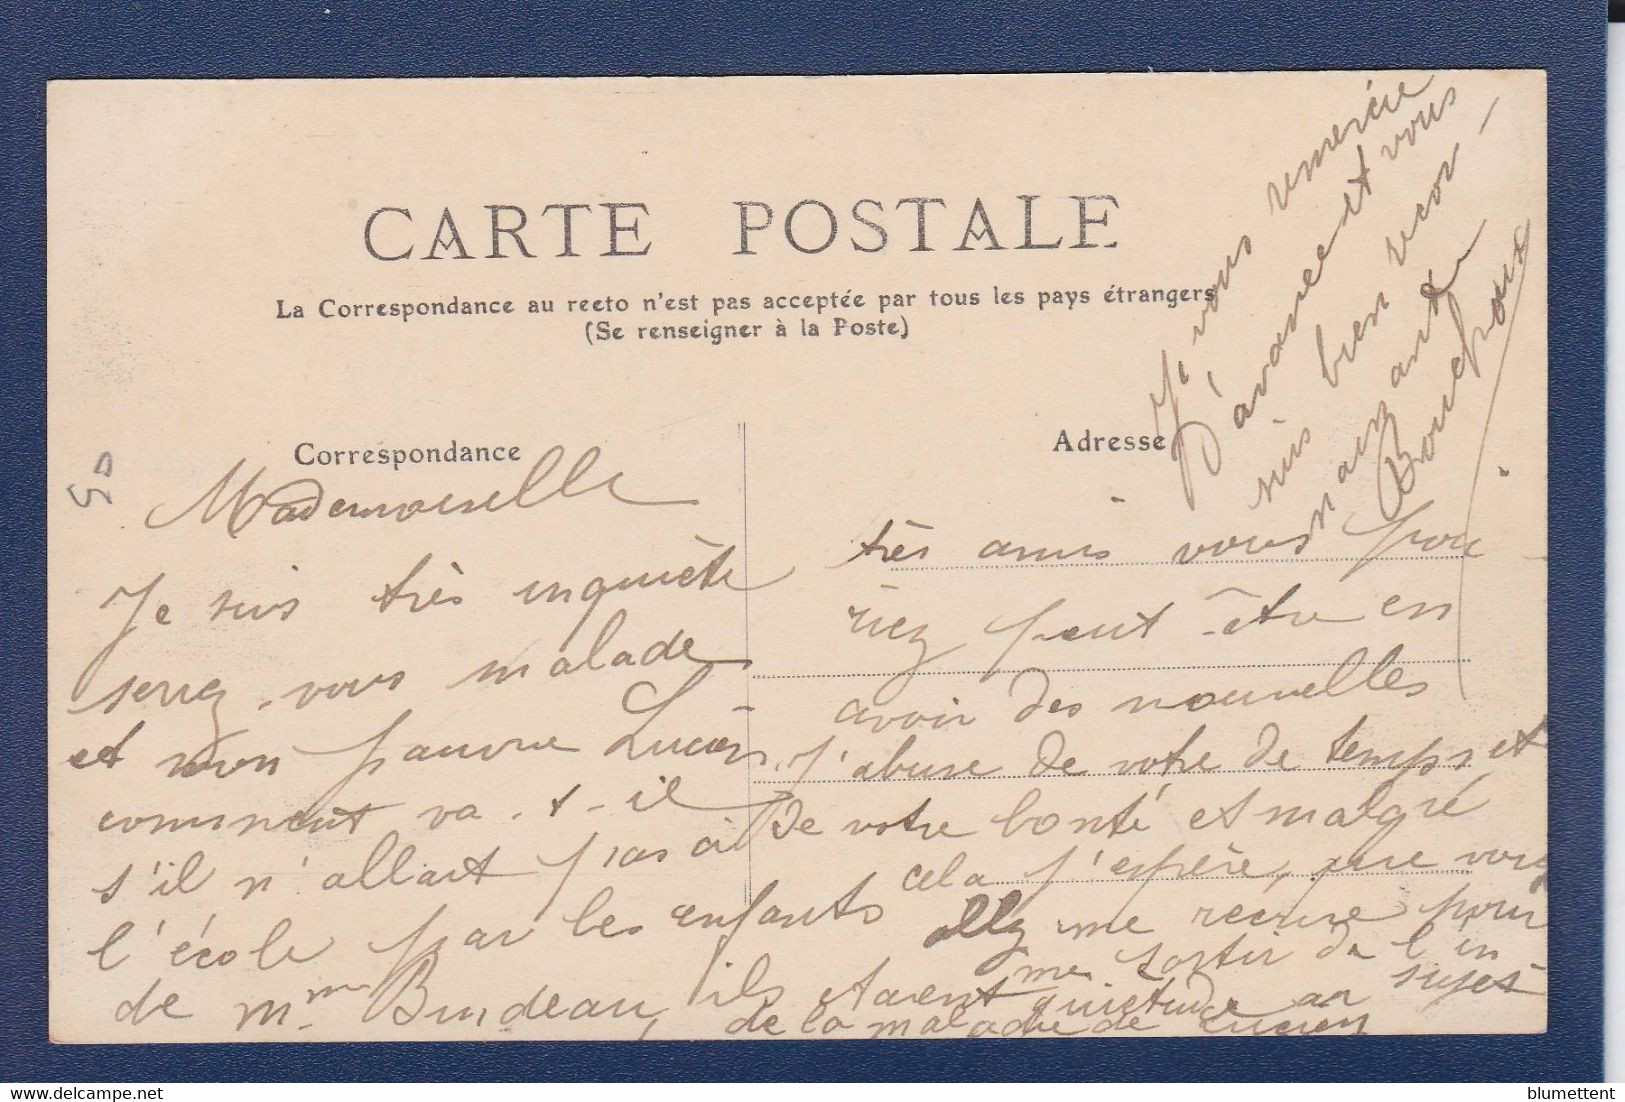 CARTE POSTALE
La Correspondance au recto n'est pas acceptée par tous les pays étrangers
(Se renseigner à la Poste)
Correspondance
Adresse
50
Mademoiselle
Je suis très inquiète
serrez-vous malade
et mon pauvre Lucien
comment va-t-il
s'il n'allait pas à
l'école par les enfants
de Mme Burdeau, ils étaient
très amis vous pou-
riez peut-être en
avoir des nouvelles
J'abuse de votre de temps et
de votre bonté et malgré
cela j'espère, que vous
allez me recrire pour
me sortir de l'in
quiétude au sujet
de la maladie de Lucien
Je vous remercie
d'avance et vous
suis bien recon-
naizante
blumettent